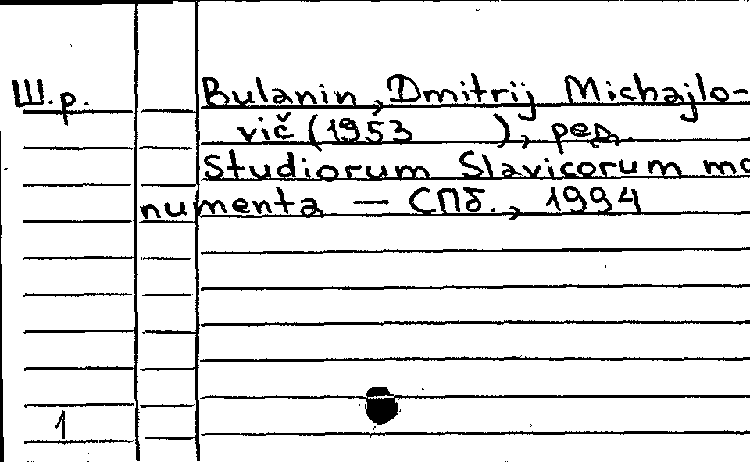 Ш.р. Bulanin, Dmitrij Michajlo-
vič (1953 ), ред.
Studiorum Slavicorum mo
numenta — СПб., 1994
1